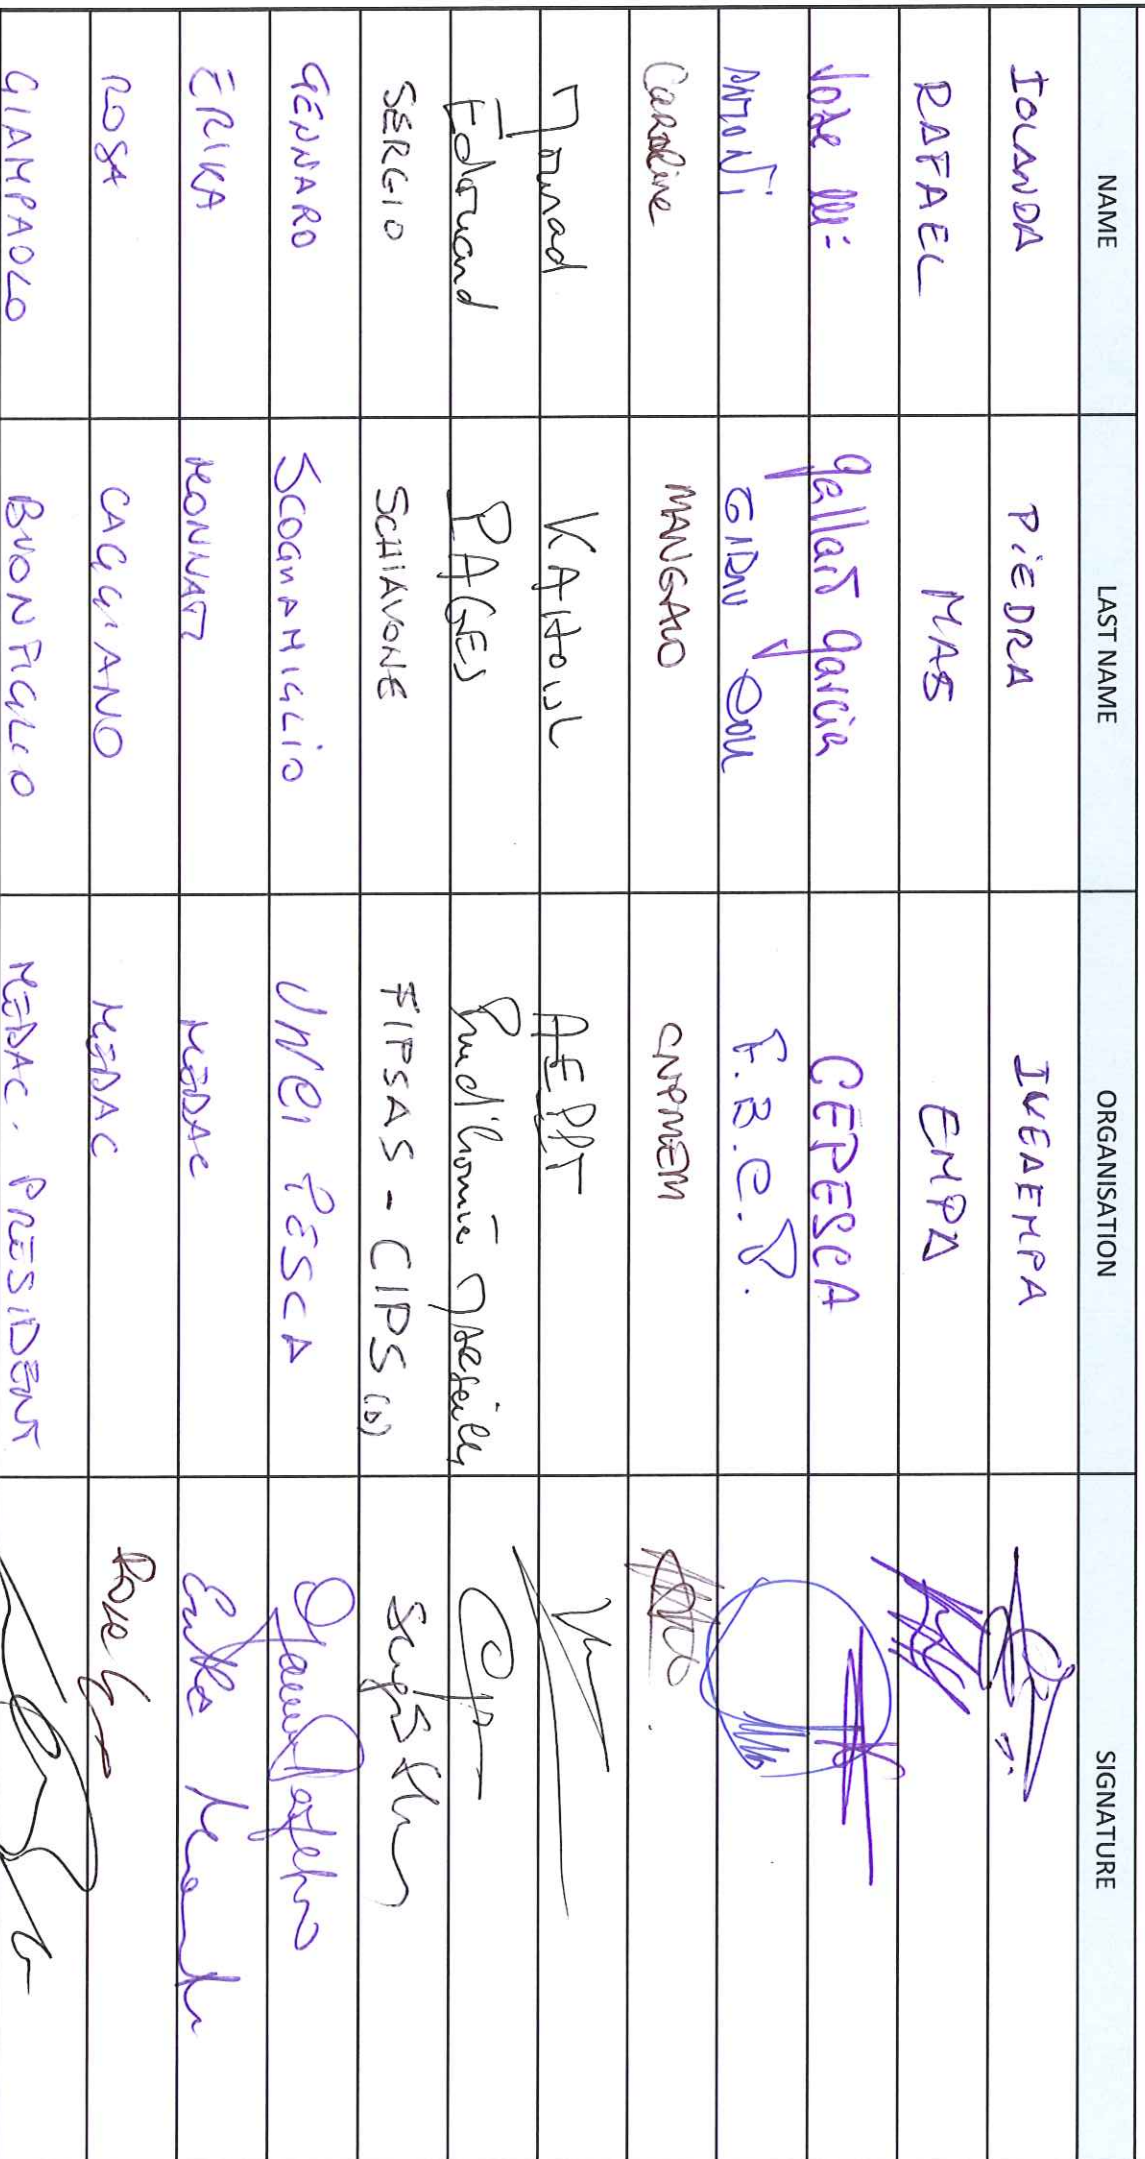 NAME LAST NAME ORGANISATION SIGNATURE
IOLANDA PIEDRA INEAEMPA
RAFAEL MAS EMPA
Jose Mª Gallart Garcia CEPESCA
ANTONI GIDAU F.B.C.P.
Caroline MANGALO CNPMEM
Mourad KAHOUL AEPPT
Edouard PAGES Prud'homie Marseille
SERGIO SCHIAVONE FIPSAS - CIPS (D)
GENNARO SCOGNAMIGLIO UNCI PESCA
ERIKA MONNATI MEDAC
ROSA CAGGIANO MEDAC
GIAMPAOLO BUONFIGLIO MEDAC. PRESIDENT